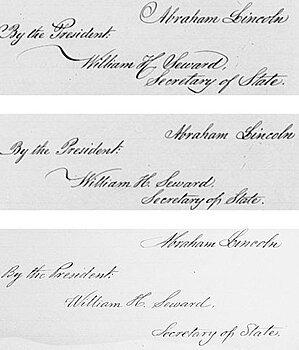 Abraham Lincoln
By the President:
William H. Seward.
Secretary of State.
Abraham Lincoln
By the President:
William H. Seward.
Secretary of State.
Abraham Lincoln
By the President:
William H. Seward,
Secretary of State.